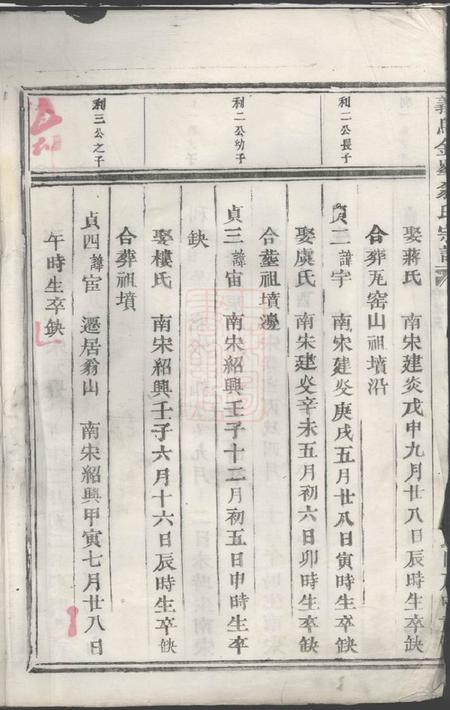 娶蔣氏　南宋建炎戊申九月廿八日辰時生卒缺
合葬瓦窑山祖墳沿
利一公長子
貞二諱宇　南宋建炎庚戌五月廿八日寅時生卒缺
娶虞氏　南宋建炎辛未五月初六日卯時生卒缺
合墓祖墳邊
利二公幼子
貞三諱宙　南宋紹興壬子十二月初五日申時生卒
缺
娶樓氏　南宋紹興壬子六月十六日辰時生卒缺
合葬祖墳
利三公之子
貞四諱宦　遷居翁山　南宋紹興甲寅七月廿八日
午時生卒缺